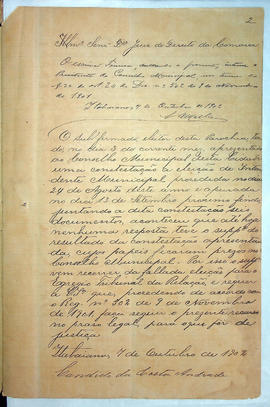 2
Illmo. Senr. Dor. Juiz de Direito da Comarca
Presidente do Conselho Municipal
1901
Itabaiana, 7 de Outubro de 1902
O abaixo firmado, eleitor desta Parochia, ten
do, no dia 3 do corrente mez, apresentado
ao Conselho Municipal desta Cidade
uma contestação á eleição de Inten
dente Municipal procedida no dia
24 de Agosto deste anno e apurada
no dia 13 de Setembro proximo findo,
juntando a dita contestação seis
documentos, aconteceu que até hoje
nenhuma resposta teve o suppte. do
resultado da contestação apresenta
da, cujos papeis ficaram no
Conselho Municipal. Por isso o supp
vem recorrer da fallada eleição para o
Egregio Tribunal da Relação, e requer
a que, procedendo de accordo com
o Reg. nº 502 de 9 de Novembro
de 1901, faça seguir o presente recurso
no praso legal, para o que fôr de
justiça
Itabaiana, 7 de Outubro de 1902
Candido da Costa Andrade